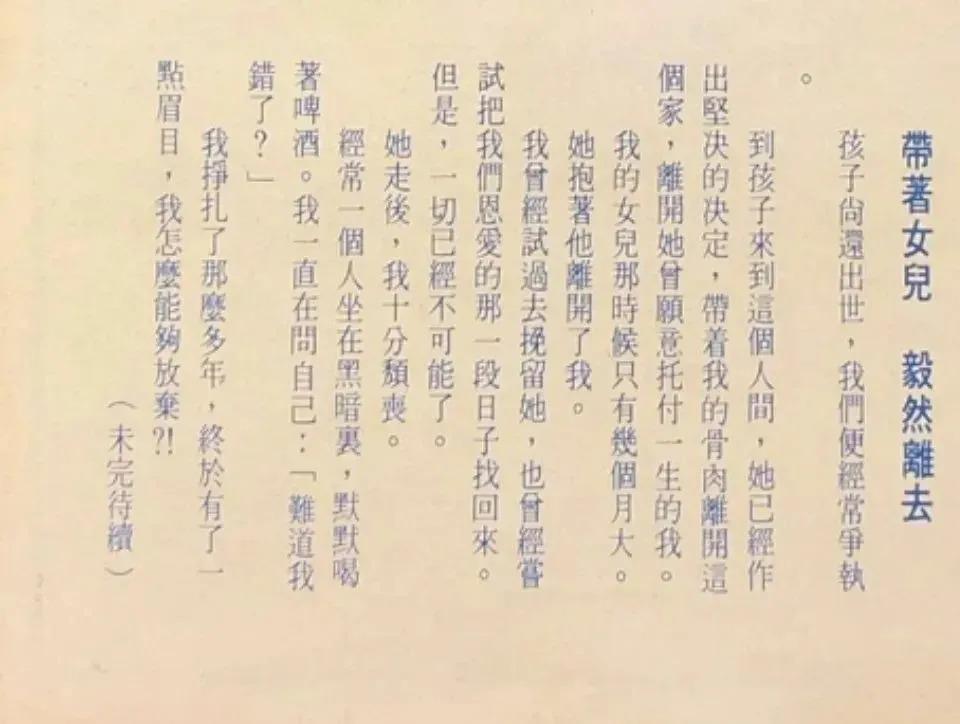 帶著女兒　毅然離去
孩子尚還出世，我們便經常爭執
。
到孩子來到這個人間，她已經作
出堅决的决定，帶着我的骨肉離開這
個家，離開她曾願意托付一生的我。
我的女兒那時候只有幾個月大。
她抱著他離開了我。
我曾經試過去挽留她，也曾經嘗
試把我們恩愛的那一段日子找回來。
但是，一切已經不可能了。
她走後，我十分頹喪。
經常一個人坐在黑暗裏，默默喝
著啤酒。我一直在問自己：「難道我
錯了？」
我掙扎了那麼多年，終於有了一
點眉目，我怎麼能夠放棄?!
（未完待續）